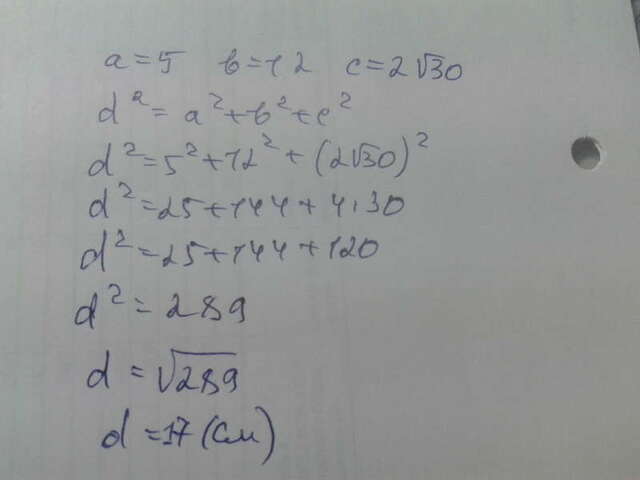 a=5 b=12 c=2√30
d²=a²+b²+c²
d²=5²+12²+(2√30)²
d²=25+144+4·30
d²=25+144+120
d²=289
d=√289
d=17(см)